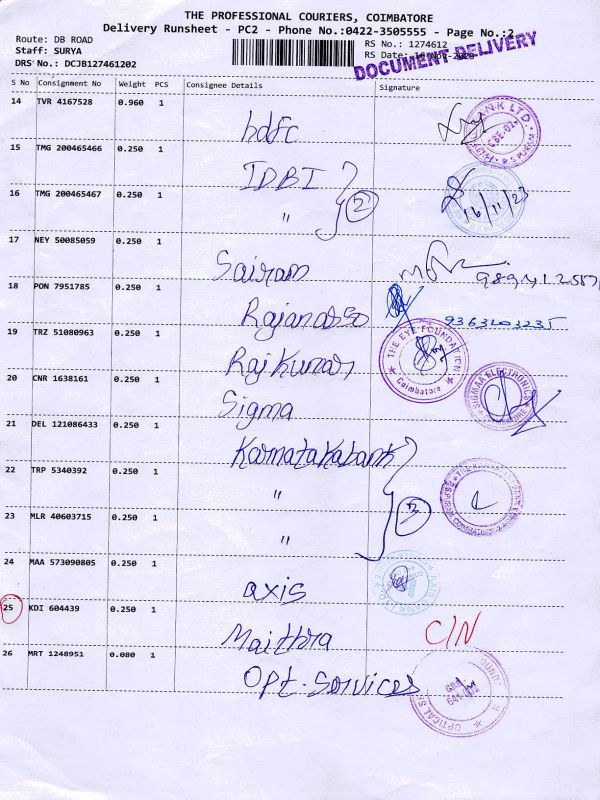 THE PROFESSIONAL COURIERS, COIMBATORE
Delivery Runsheet - PC2 - Phone No.:0422-3505555 - Page No.:2
Route: DB ROAD
Staff: SURYA
DRS No.: DCJB127461202
RS No.: 1274612
RS Date:
DOCUMENT DELIVERY
S No Consignment No Weight PCS Consignee Details Signature
14 TVR 4167528 0.960 1 hdfc
15 TMG 200465466 0.250 1 IDBI
16 TMG 200465467 0.250 1 " 2 16/11/23
17 NEY 50085059 0.250 1 Sairam
18 PON 7951785 0.250 1 Rajanasso 9363203235
19 TRZ 51080963 0.250 1 Rajkumar THE EYE FOUNDATION Coimbatore
20 CNR 1638161 0.250 1 Sigma SIGMAA ELECTRONICS
21 DEL 121086433 0.250 1 Karnatakabank
22 TRP 5340392 0.250 1 "
23 MLR 40603715 0.250 1 " 3
24 MAA 573090805 0.250 1 axis
25 KDI 604439 0.250 1 Maithra C/N
26 MRT 1248951 0.080 1 Opt. Services